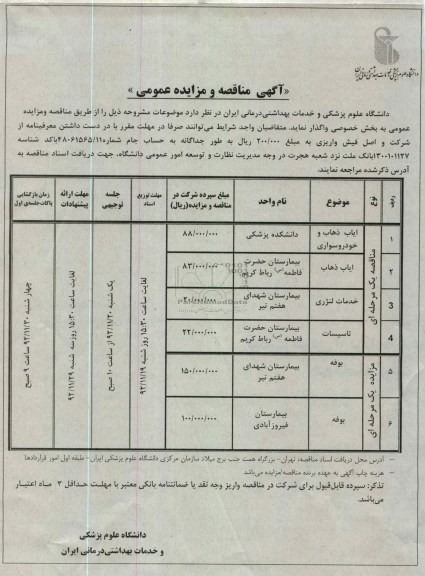 دانشگاه علوم پزشکی و خدمات بهداشتی درمانی ایران
«آگهی مناقصه و مزایده عمومی»
دانشگاه علوم پزشکی و خدمات بهداشتی‌درمانی ایران در نظر دارد موضوعات مشروحه ذیل را از طریق مناقصه ومزایده
عمومی به بخش خصوصی واگذار نماید. متقاضیان واجد شرایط می‌توانند صرفا در مهلت مقرر با در دست داشتن معرفینامه از
شرکت و اصل فیش واریزی به مبلغ ۲۰۰/۰۰۰ ریال به طور جداگانه به حساب جام شماره۴۸۰۶۱۵۶۵/۱۱باکد شناسه
۱۳۰۰۱۰۱۱۳۷بانک ملت نزد شعبه هجرت در وجه مدیریت نظارت و توسعه امور عمومی دانشگاه، جهت دریافت اسناد مناقصه به
آدرس ذکرشده مراجعه نمایند.
ردیف نوع موضوع نام واحد مبلغ سپرده شرکت در مناقصه و مزایده(ریال) مهلت توزیع اسناد جلسه توجیهی مهلت ارائه پیشنهادات زمان بازگشایی پاکات جلسه‌ی اول
مناقصه یک مرحله ای
۱ ایاب ذهاب و خودروسواری دانشکده پزشکی ۸۸/۰۰۰/۰۰۰
۲ ایاب ذهاب بیمارستان حضرت فاطمه (س) رباط کریم ۸۳/۰۰۰/۰۰۰
۳ خدمات لنژری بیمارستان شهدای هفتم تیر ۲۰/۰۰۰/۰۰۰
۴ تاسیسات بیمارستان حضرت فاطمه (س) رباط کریم ۲۲/۰۰۰/۰۰۰
مزایده یک مرحله ای
۵ بوفه بیمارستان شهدای هفتم تیر ۱۵۰/۰۰۰/۰۰۰
۶ بوفه بیمارستان فیروزآبادی ۱۰۰/۰۰۰/۰۰۰
لغایت ساعت ۱۵:۳۰ روز شنبه ۹۲/۱۱/۱۹
یک شنبه ۹۲/۱۱/۲۰ از ساعت ۱۰ صبح
لغایت ساعت ۱۵:۳۰ روزسه شنبه ۹۲/۱۱/۲۹
چهار شنبه ۹۲/۱۱/۳۰ ساعت ۹ صبح
– آدرس محل دریافت اسناد مناقصه: تهران– بزرگراه همت جنب برج میلاد سازمان مرکزی دانشگاه علوم پزشکی ایران– طبقه اول امور قراردادها
– هزینه چاپ آگهی به عهده برنده مناقصه/مزایده می‌باشد
تذکر: سپرده قابل‌قبول برای شرکت در مناقصه واریز وجه نقد یا ضمانتنامه بانکی معتبر با مهلت حداقل ۳ ماه اعتبار
می‌باشد.
دانشگاه علوم پزشکی
و خدمات بهداشتی‌درمانی ایران